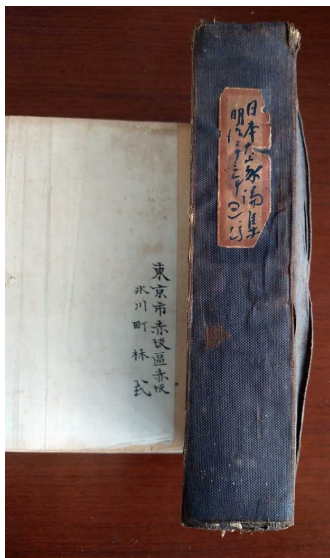 日本大家論集
明治二十三年
東京市赤坂區赤坂
氷川町 林